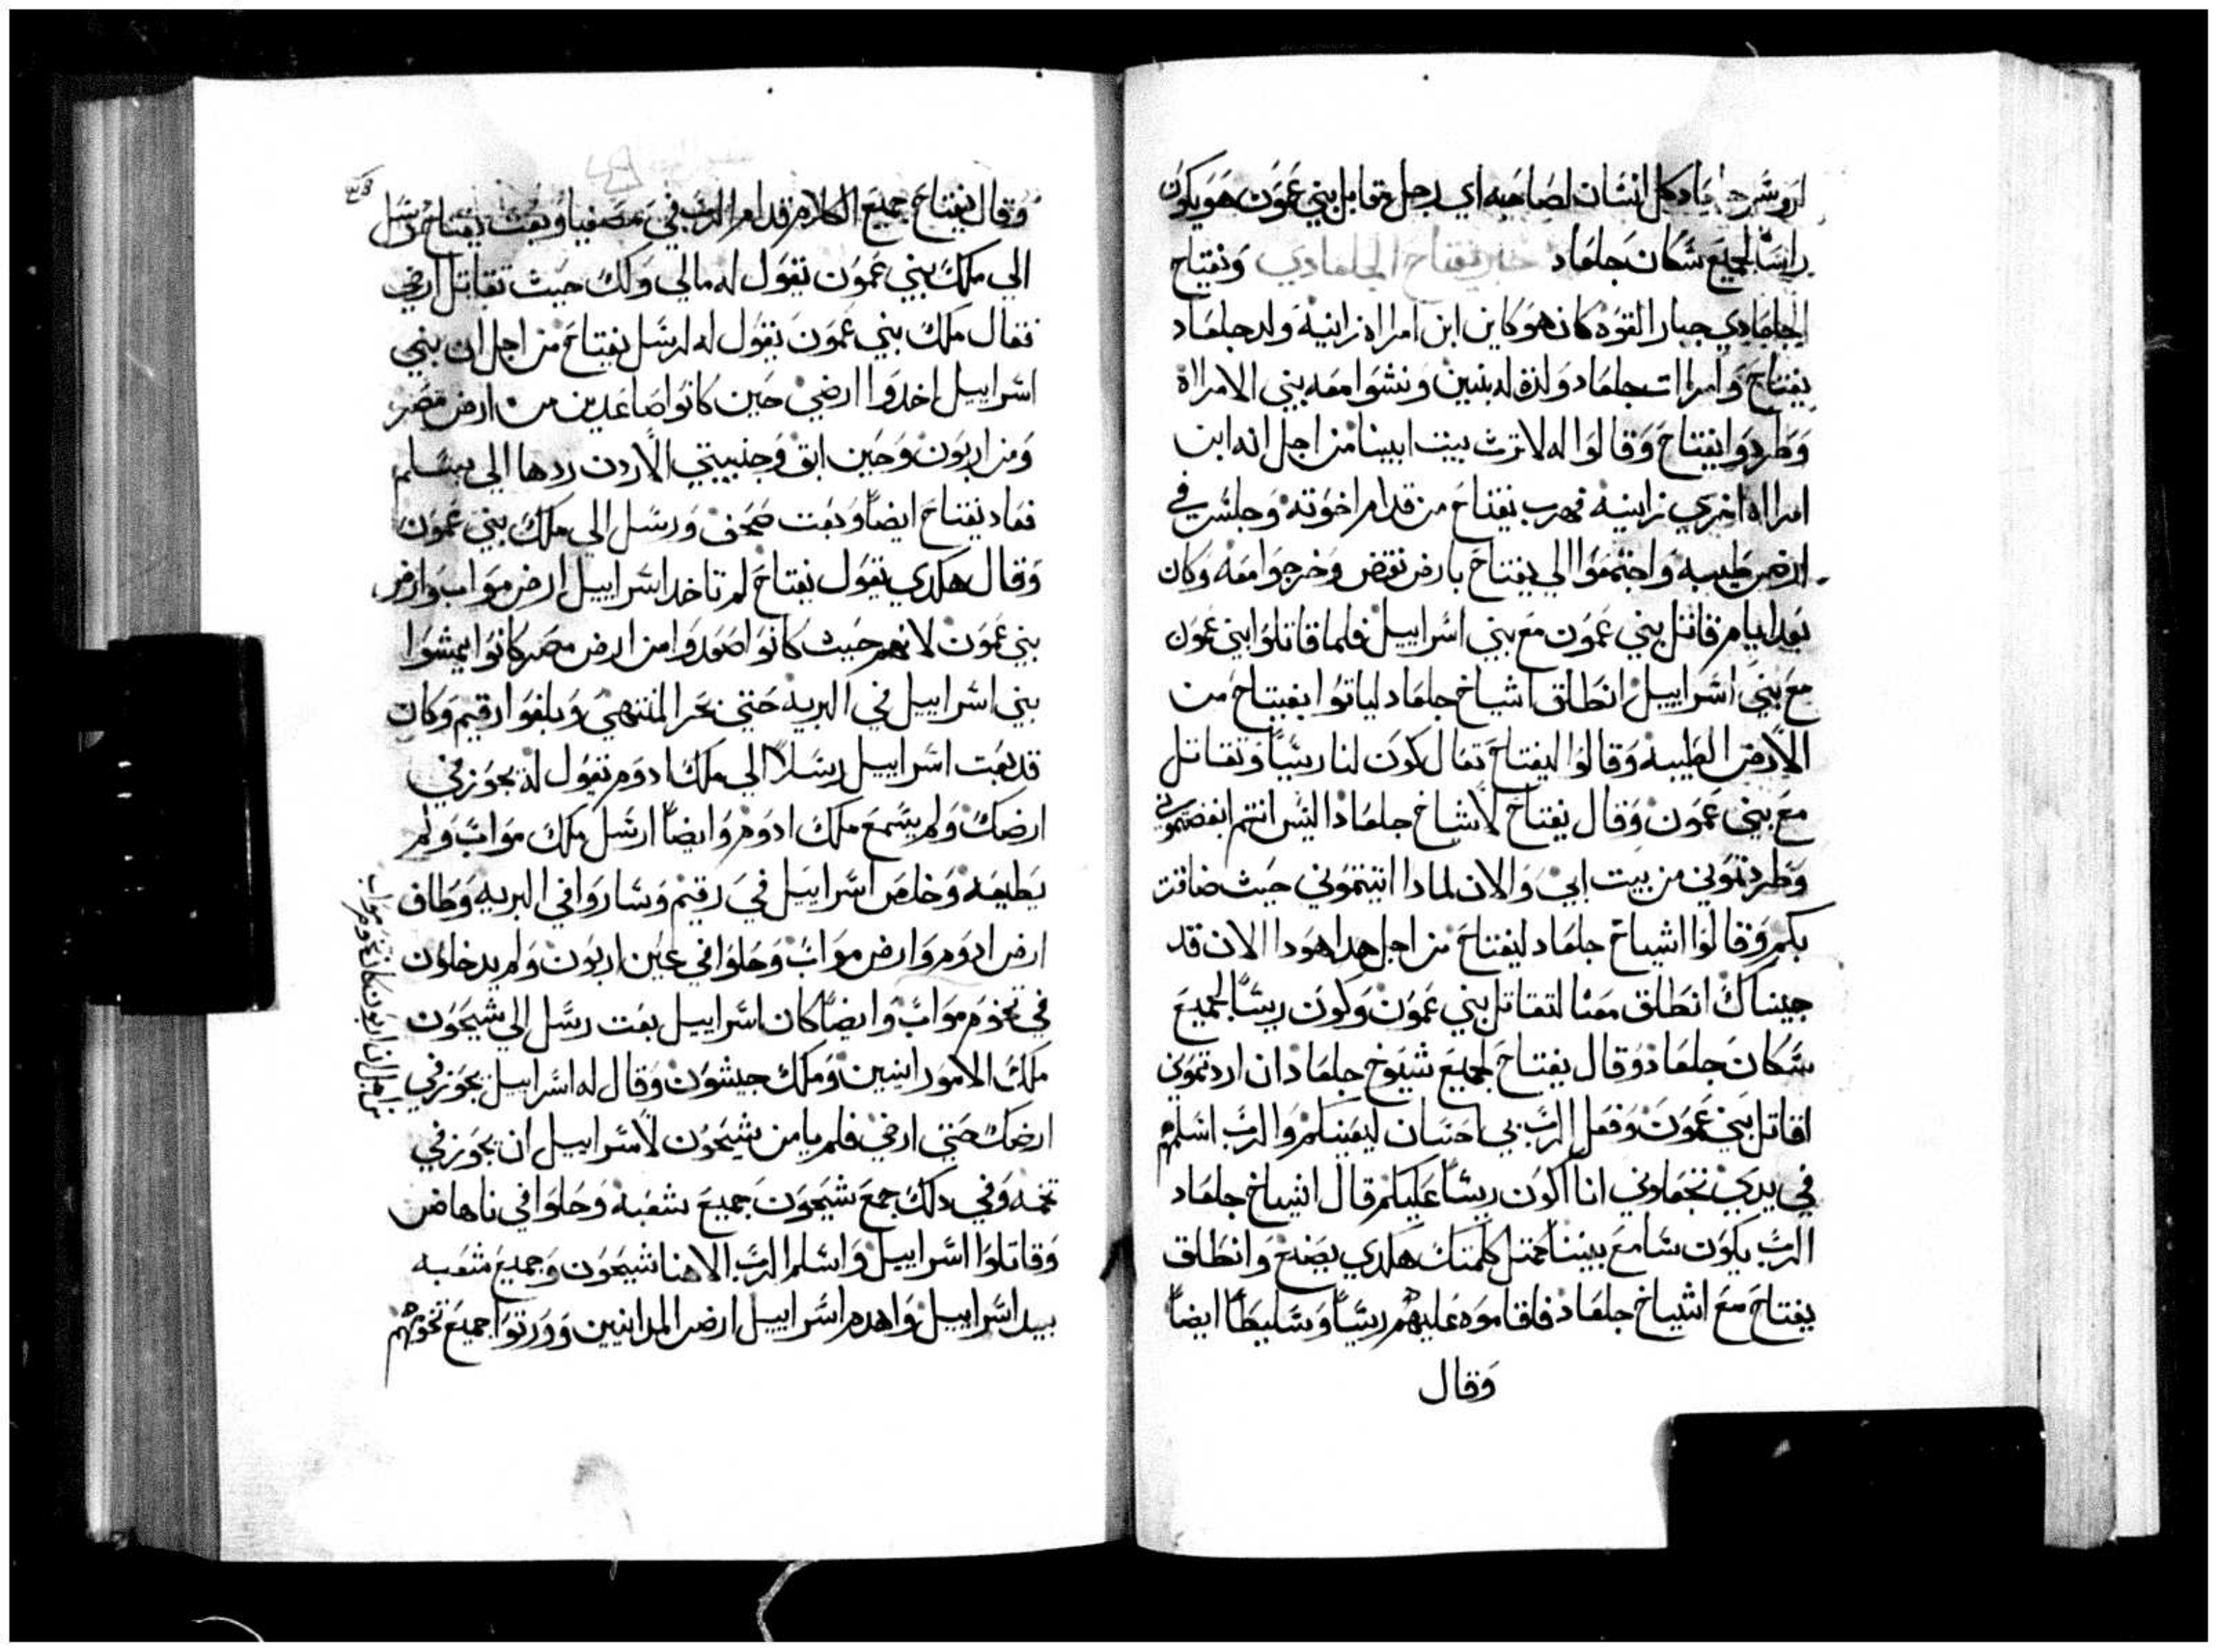 اروس جلعاد كل انسان لصاحبه اي رجل مقابل بني عمون هو يكون
راسًا لجميع سكان جلعاد خبر يفتاح الجلعادي ويفتاح
الجلعادي جبار القوه كان هو كاين ابن امراه زانيه ولد جلعاد
يفتاح وامراات جلعاد ولدة له بنين ونشوا معه بني الامرااة
وطردوا يفتاح وقالوا له لا ترث بيت ابينا من اجل انه ابن
امرااه اخري زانيه فهرب يفتاح من قدام اخوته وجلس في
ارض طيبه واجتمعوا الي يفتاح بارض نقض وخرجوا معه وكان
بعد ايام قاتل بني عمون مع بني اسراييل فلما قاتلوا بني عمون
مع بني اسراييل انطلق اشياخ جلعاد لياتوا بيفتاح من
الارض الطيبه وقالوا ليفتاح تعال كون لنا ريسًا وتقاتل
مع بني عمون وقال يفتاح لاشياخ جلعاد اليس انتم ابغضتموني
وطردتوني من بيت ابي والان لمادا اتيتموني حيث ضاقت
بكم وقالوا اشياخ جلعاد ليفتاح من اجل هدا هودا الان قد
جيناك انطلق معنا لتقاتل بني عمون وكون ريسًا لجميع
سكان جلعاد وقال يفتاح لجميع شيوخ جلعاد ان اردتموني
اقاتل بني عمون وفعل الرب بي احسان ليعينكم والرب اسلمهم
في يدي تجعلوني انا اكون ريسًا عليكم قال اشياخ جلعاد
الرب يكون سامع بيننا كمتل كلمتك هكدي يصنع وانطلق
يفتاح مع اشياخ جلعاد فاقاموه عليهم ريسًا وسليطًا ايضًا
وقال
وقال يفتاح جميع الكلام قدام الرب في مصفيا وبعث يفتاح رسل
الي ملك بني عمون تقول له مالي ولك حيث تقاتل ارضي
فقال ملك بني عمون يقول له لرسل يفتاح من اجل ان بني
اسراييل اخدوا ارضي حين كانوا صاعدين من ارض مصر
ومن اربون وحين ابق وجنبيتي الاردن ردها الي بسلم
فعاد يفتاح ايضًا وبعت صحف ورسل الي ملك بني عمون
وقال هكدي يقول يفتاح لم تاخد اسراييل ارض مواب وارض
بني عمون لانهم حيث كانوا صعدوا من ارض مصر كانوا يمشوا
بني اسراييل في البريه حتي بحر المنتهي وبلغوا رقيم وكان
قد بعت اسراييل رسلًا الي ملك ادوم تقول له يجوز في
ارضك ولم يسمع ملك ادوم وايضًا ارسل ملك مواب ولم
يطيعه وخلص اسراييل في رقيم وساروا في البريه وطاف
ارض ادوم وارض مواب وحلوا في عين اربون ولم يدخلون
في تخوم مواب وايضًا كان اسراييل بعت رسل الي شيحون
ملك الامورانيين وملك حيشون وقال له اسراييل يجوز في
ارضك حتي ارضي فلم يامن شيحون لاسراييل ان يجوز في
تخمه وفي دلك جمع شيحون جميع شعبه وحلوا في ناهاض
وقاتلوا اسراييل واسلم الرب الاهنا شيحون وجميع شعبه
بيد اسراييل واهدم اسراييل ارض المدانيين وورتوا جميع تخومهم
من اجل ان اربون كان تخوم مواب